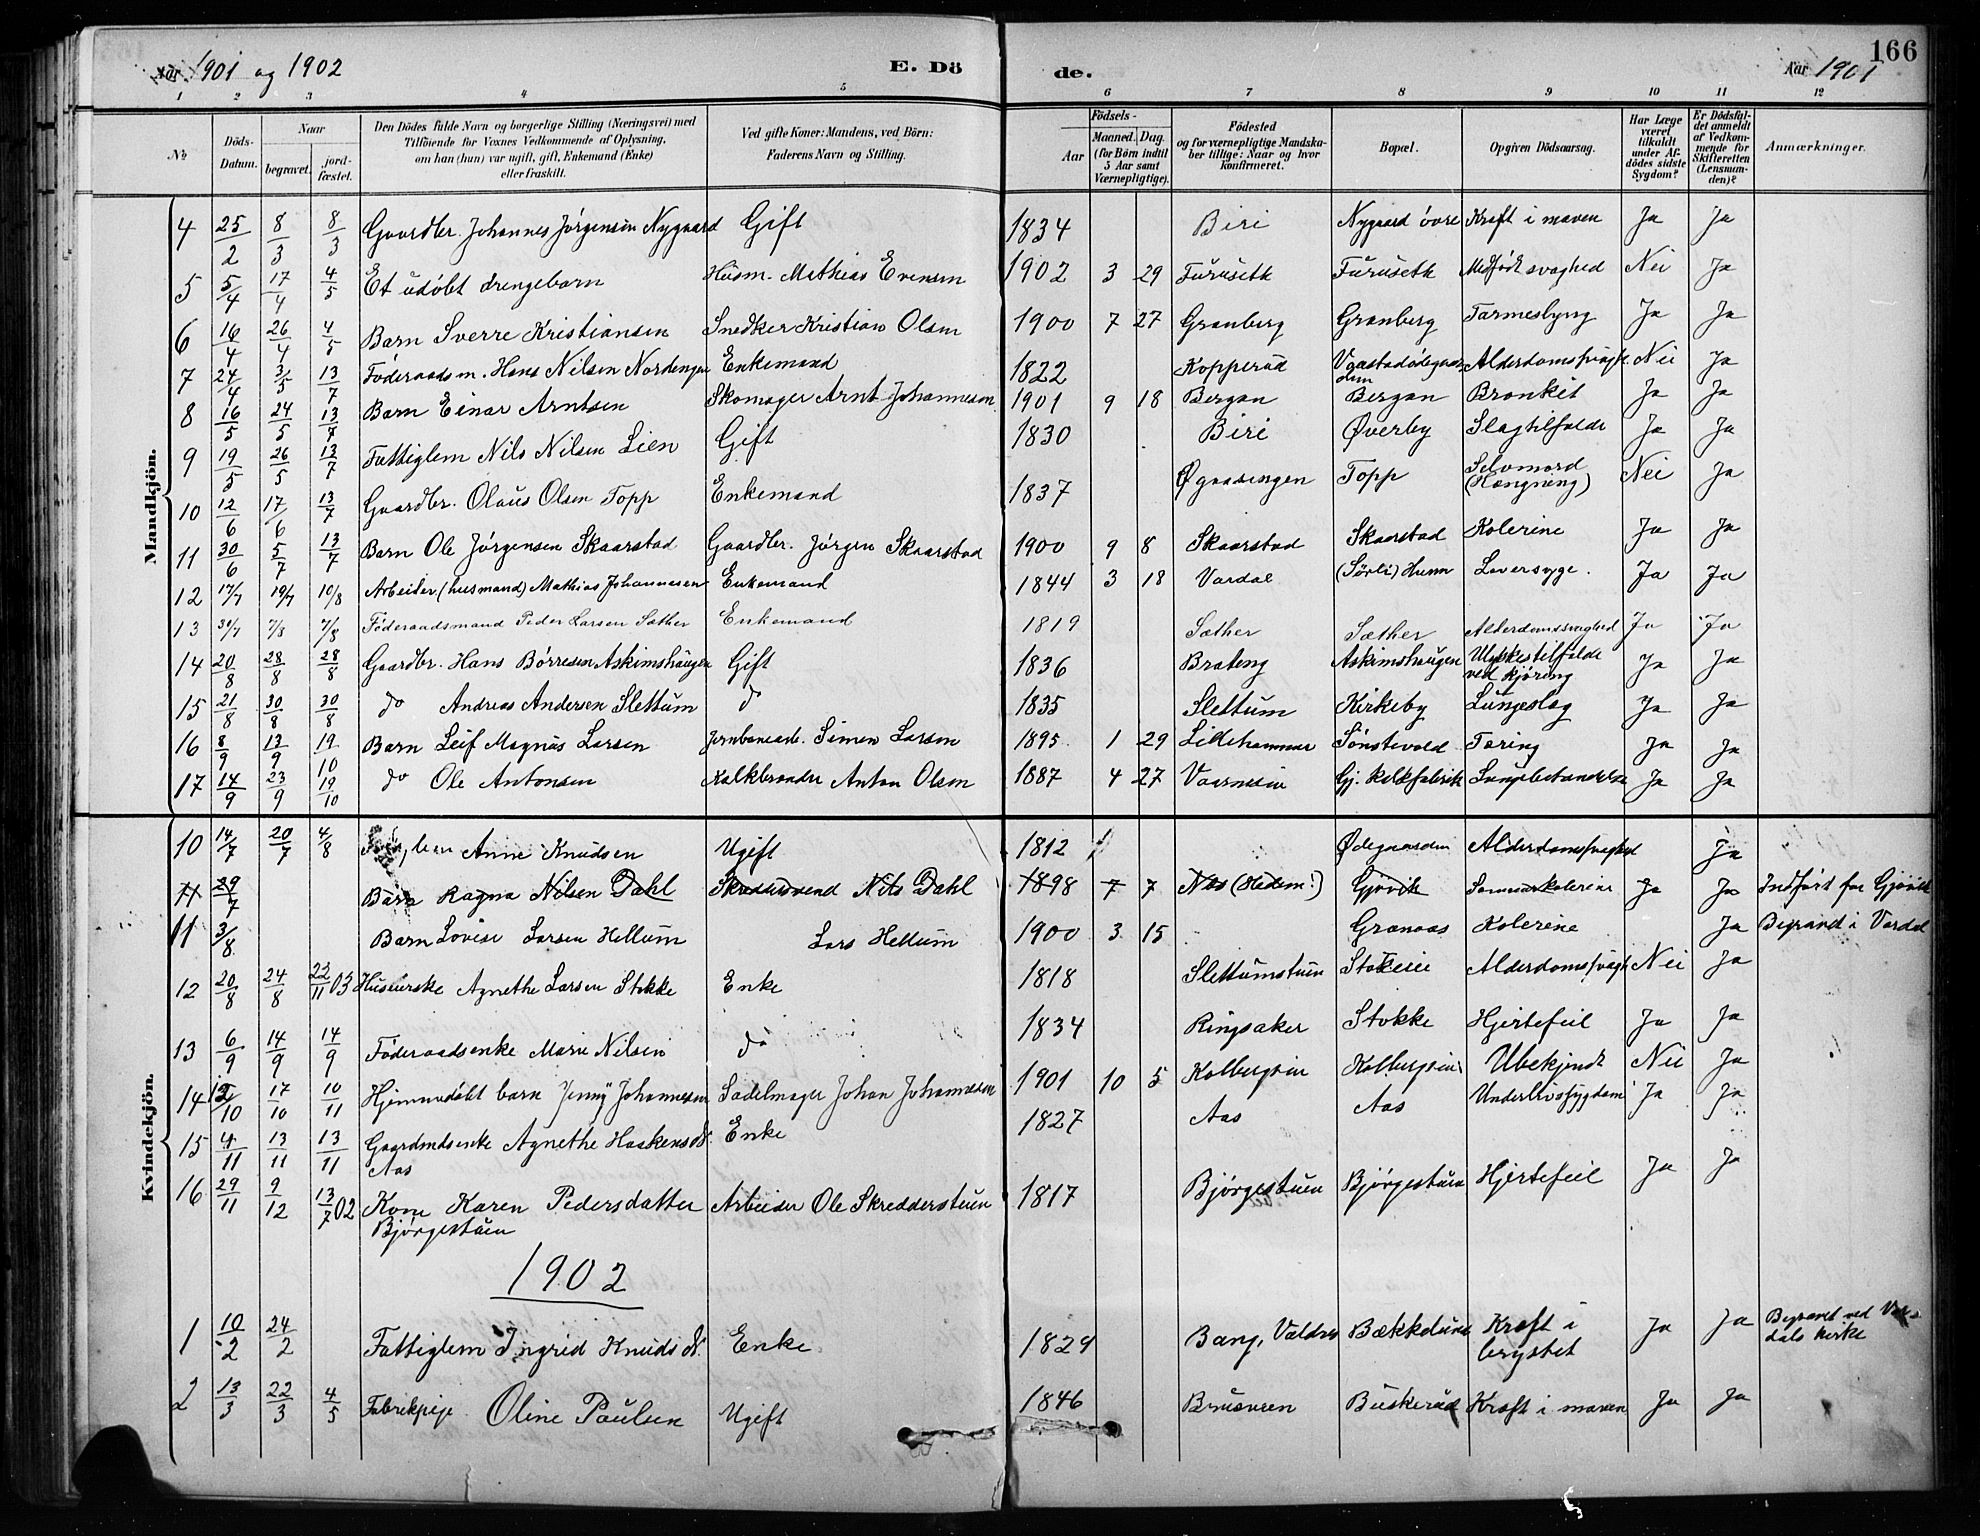 Aar 1901 og 1902 E. Dö
de. Aar 1901 166
1 2 3 4 5 6 7 8 9 10 11 12
No. Döds-Datum. Naar begravet. jord-fæstet. Den Dödes fulde Navn og borgerlige Stilling (Næringsvei) med Tilföiende for Voxnes Vedkommende af Oplysning, om han (hun) var ugift, gift, Enkemand (Enke) eller fraskilt. Ved gifte Koner: Mandens, ved Börn: Faderens Navn og Stilling. Födsels- Aar Maaned. Dag. (for Börn indtil 5 Aar samt Værnepligtige). Födested og for værnepligtige Mandskaber tillige: Naar og hvor konfirmeret. Bopæl. Opgiven Dödsaarsag. Har Læge været tilkaldt under Afdödes sidste Sygdom? Er Dödsfaldet anmeldt af Vedkommende for Skifteretten (Lensmanden)? Anmærkninger.
Mandkjön.
4 25/2 8/3 8/3 Gaardbr. Johannes Jørgensen Nygaard Gift 1834 Biri Nygaard övre Kræft i maven Ja Ja
5 5/4 17/4 4/5 Et udøbt drengebarn Husm. Mathias Evensen 1902 3 29 Furuseth Furuseth Medfødt svaghed Nei Ja
6 16/4 26/4 4/5 Barn Sverre Kristiansen Snedker Kristian Olsen 1900 7 27 Granberg Granberg Tarmeslyng Ja Ja
7 24/4 3/5 13/7 Föderaadsm. Hans Nilsen Nordengen Enkemand 1822 Kopperud Alderdomssvagh. Nei Ja
8 16/5 24/5 13/7 Barn Einar Arntsen Skomager Arnt Johannesen 1901 9 18 Bergan Bergan Bronkit Ja Ja
9 19/5 26/5 13/7 Fattiglem Nils Nilsen Lien Gift 1830 Biri Øverby Slagtilfælde Ja Ja
10 12/6 17/6 13/7 Gaardbr. Olaus Olsen Topp Enkemand 1837 Øgaasingen Topp Selvmord (Hængning) Nei Ja
11 30/6 5/7 13/7 Barn Ole Jørgensen Skaarstad Gaardbr. Jørgen Skaarstad 1900 9 8 Skaarstad Skaarstad Kolerine Ja Ja
12 17/7 19/7 10/8 Arbeider (husmand) Mathias Johannesen Enkemand 1844 3 18 Vardal (Sörli) Hunn Leversyge. Ja Ja
13 30/7 7/8 7/8 Föderaadsmand Peder Larsen Sæther Enkemand 1819 Sæther Sæther Alderdomssvaghed Ja Ja
14 20/8 28/8 28/8 Gaardbr. Hans Børresen Askimshaugen Gift 1836 Brateng Askimshaugen Ulykkestilfælde ved kjøring Ja Ja
15 21/8 30/8 30/8 do Andreas Andersen Slettum do 1835 Slettum Kirkeby Lungeslag Ja Ja
16 8/9 13/9 19/10 Barn Leif Magnus Larsen Jernbanearb. Simen Larsen 1895 1 29 Lillehammer Sønstevold Tæring Ja Ja
17 14/9 23/9 19/10 do Ole Antonsen Kalkbrænder Anton Olsen 1887 4 27 Gj. Kalkfabrik Lungebetændelse Ja Ja
Kvindekjön.
10 14/7 20/7 4/8 Anne Knudsen Ugift 1812 Ødegaarden Alderdomssvaghed Ja
11 29/7 Barn Ragna Nilsen Dahl Skræddersvend Nils Dahl 1898 7 7 Næs (Hedem.) Gjøvik Sommerkolerine Ja Ja Indført for Gjøvik
11 3/8 Barn Lovise Larsen Hellum Lars Hellum 1900 3 15 Granaas Kolerine Ja Begravd i Vardal
12 20/8 24/8 22/11 03 Agnethe Larsen Stokke Enke 1818 Slettumstuen Stokeie Alderdomssvagh Nei Ja
13 6/9 14/9 14/9 Föderaadsenke Marie Nilsen do 1834 Ringsaker Stokke Hjertefeil Ja Ja
14 12/10 17/10 10/11 Hjemmedøbt barn Jenny Johannesen Sadelmager Johan Johannesen 1901 10 5 Kolbergsvn Kolbergsvn Ubekjendt Nei Ja
15 4/11 13/11 13/11 Gaardmdsenke Agnethe Haakensdt. Aas Enke 1827 Aas Aas Underlivssygdom Ja Ja
16 29/11 9/12 13/7 02 Kone Karen Pedersdatter Bjørgestuen Arbeider Ole Skredderstuen 1817 Bjørgestuen Bjørgestuen Hjertefeil Ja Ja
1902
1 10/2 24/2 Fattiglem Ingrid Knudsdt. Enke 1829 Bang, Valdres Bækkelund Kræft i brystet Ja Ja Begravet ved Vardals kirke
2 13/3 22/3 4/5 Fabrikpige Oline Paulsen Ugift 1846 Brusveen Buskerud Kræft i maven Ja Ja